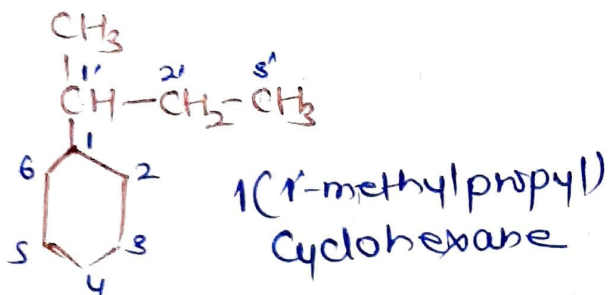 CH3
1'
2'
3'
CH-CH2-CH3
1
6
2
5
3
4
1(1'-methylpropyl)
Cyclohexane